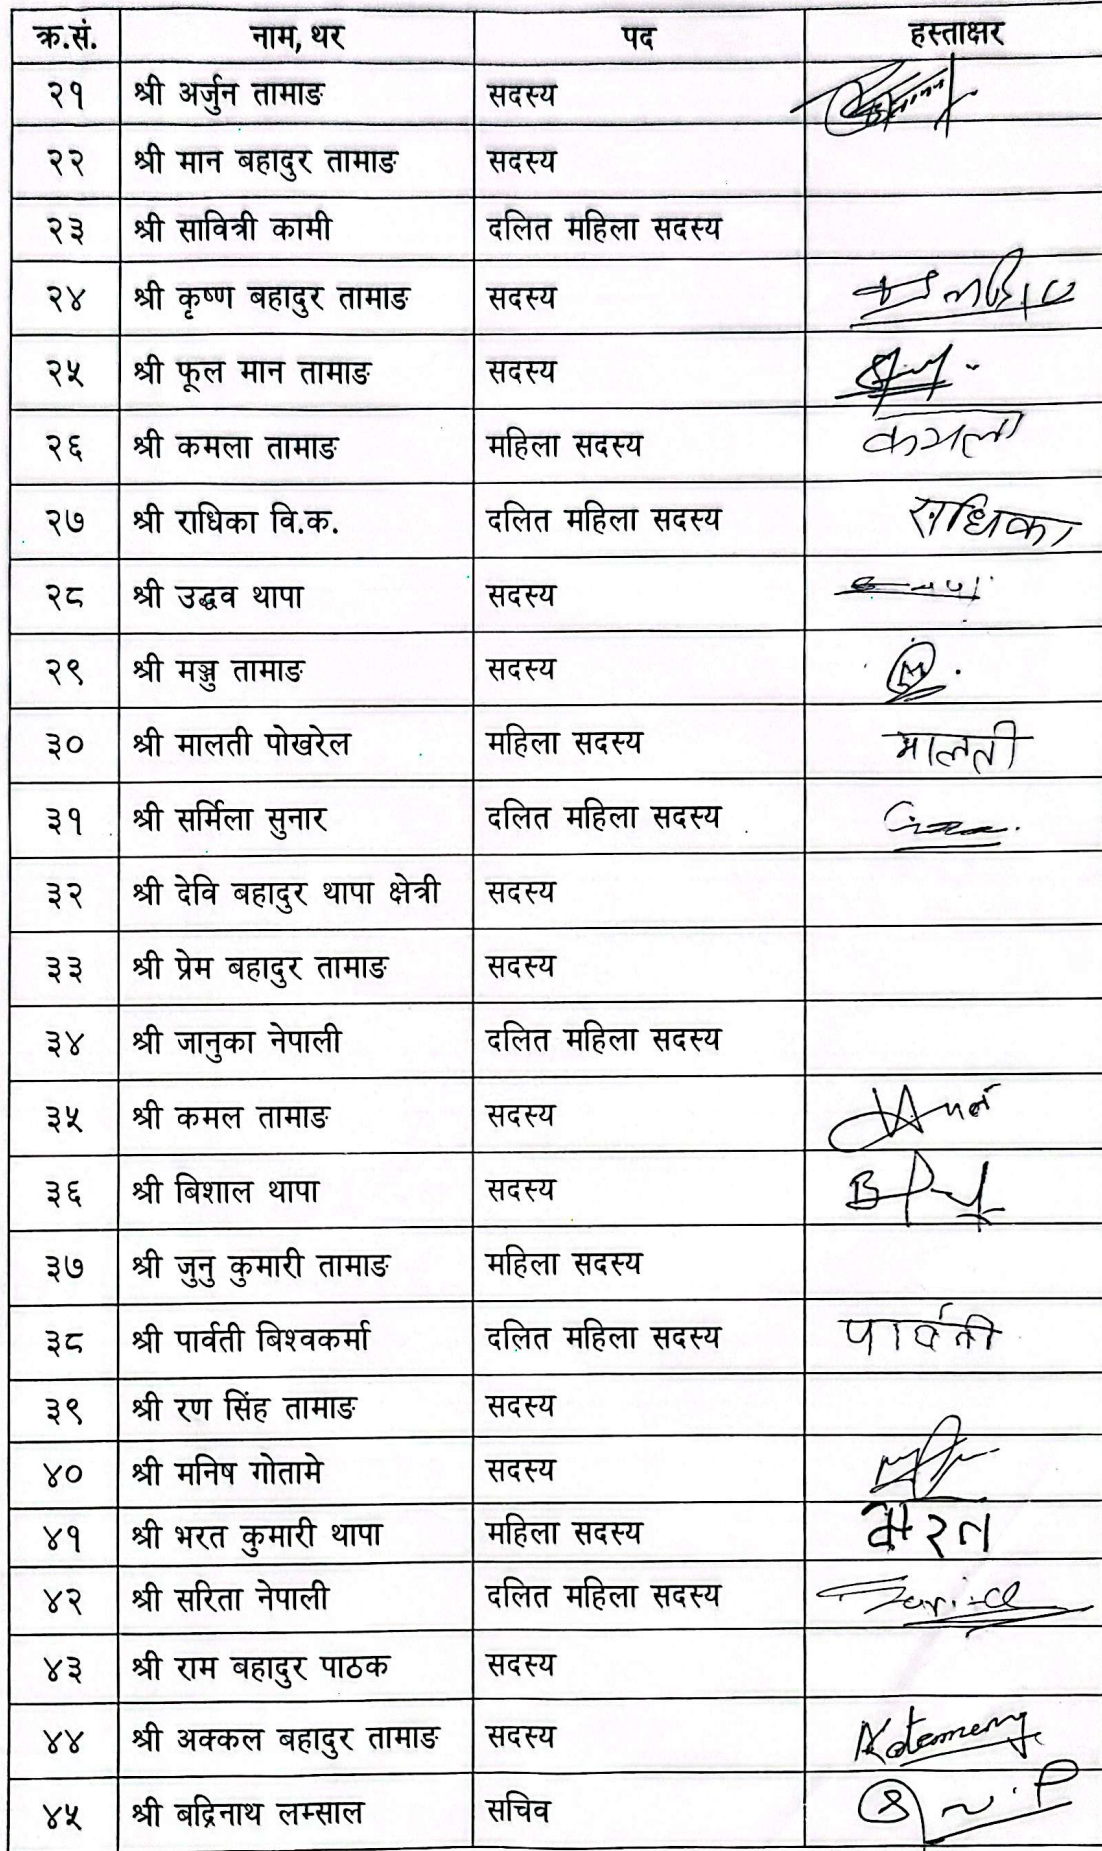 क्र.सं. नाम, थर पद हस्ताक्षर
२१ श्री अर्जुन तामाङ सदस्य
२२ श्री मान बहादुर तामाङ सदस्य
२३ श्री सावित्री कामी दलित महिला सदस्य
२४ श्री कृष्ण बहादुर तामाङ सदस्य
२५ श्री फूल मान तामाङ सदस्य
२६ श्री कमला तामाङ महिला सदस्य कमला
२७ श्री राधिका वि.क. दलित महिला सदस्य राधिका
२८ श्री उद्धव थापा सदस्य
२९ श्री मञ्जु तामाङ सदस्य
३० श्री मालती पोखरेल महिला सदस्य मालती
३१ श्री सर्मिला सुनार दलित महिला सदस्य
३२ श्री देवि बहादुर थापा क्षेत्री सदस्य
३३ श्री प्रेम बहादुर तामाङ सदस्य
३४ श्री जानुका नेपाली दलित महिला सदस्य
३५ श्री कमल तामाङ सदस्य
३६ श्री बिशाल थापा सदस्य
३७ श्री जुनु कुमारी तामाङ महिला सदस्य
३८ श्री पार्वती बिश्वकर्मा दलित महिला सदस्य पार्वती
३९ श्री रण सिंह तामाङ सदस्य
४० श्री मनिष गोतामे सदस्य
४१ श्री भरत कुमारी थापा महिला सदस्य भरत
४२ श्री सरिता नेपाली दलित महिला सदस्य
४३ श्री राम बहादुर पाठक सदस्य
४४ श्री अक्कल बहादुर तामाङ सदस्य
४५ श्री बद्रिनाथ लम्साल सचिव